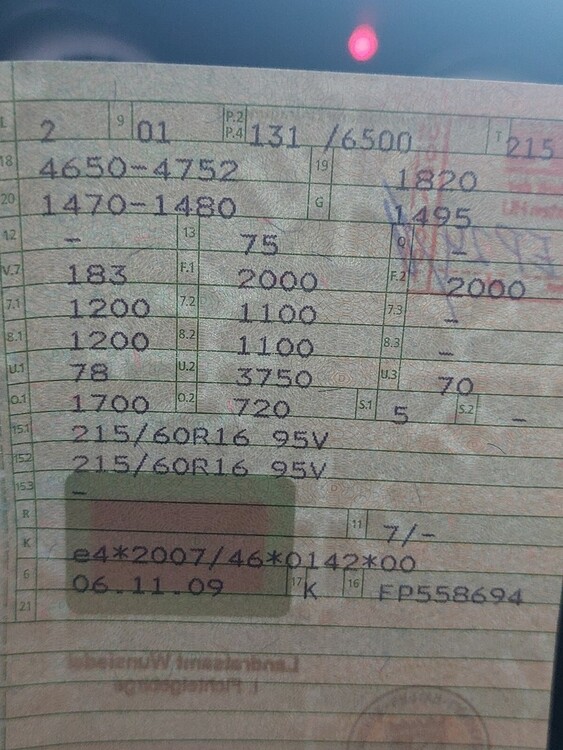 L 2 9 01 P.2 P.4 131 /6500 T 215
18 4650-4752 19 1820
20 1470-1480 G 1495
12 - 13 75 Q -
V.7 183 F.1 2000 F.2 2000
7.1 1200 7.2 1100 7.3 -
8.1 1200 8.2 1100 8.3 -
U.1 78 U.2 3750 U.3 70
O.1 1700 O.2 720 S.1 5 S.2 -
15.1 215/60R16 95V
15.2 215/60R16 95V
15.3 -
R 11 7/-
K e4*2007/46*0142*00
6 06.11.09 17 K 16 FP558694
21
Landratsamt Wunsiedel
i. Fichtelgebirge